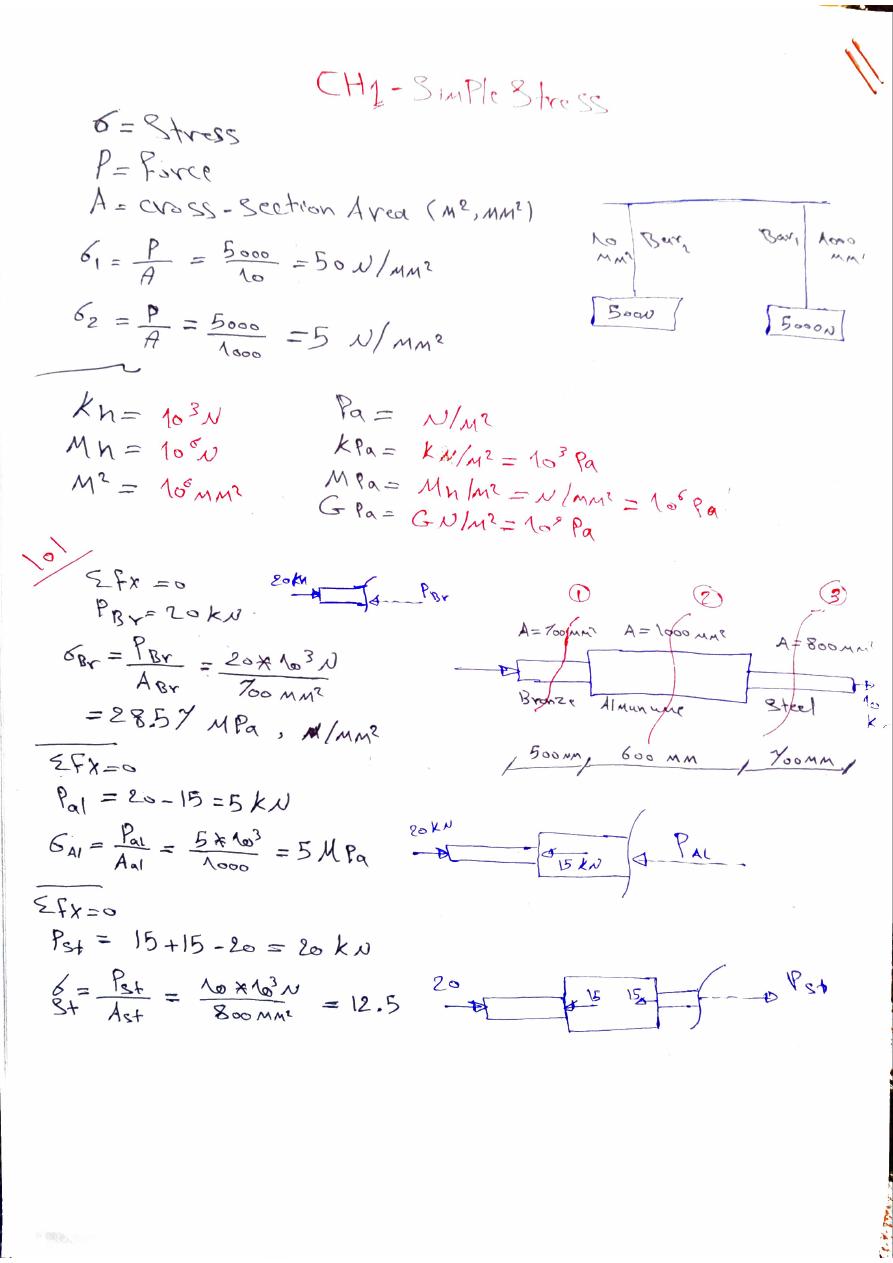 CH1 - Simple Stress
σ = Stress
P = Force
A = cross-section Area (M², MM²)
σ₁ = P/A = 5000/10 = 50 N/MM²
σ₂ = P/A = 5000/1000 = 5 N/MM²
10 MM² Bar₂
Bar₁ 1000 MM²
500N
5000N
Kn = 10³ N
Mn = 10⁶ N
M² = 10⁶ MM²
Pa = N/M²
KPa = KN/M² = 10³ Pa
MPa = Mn/M² = N/MM² = 10⁶ Pa
GPa = GN/M² = 10⁹ Pa
101
Σfx = 0
P Br = 20 KN
σ Br = P Br / A Br = 20*10³ N / 700 MM²
= 28.57 MPa, N/MM²
20KN
P Br
① ② ③
A = 700 MM² A = 1000 MM² A = 800 MM²
Bronze Almunume Steel
10
K.
500MM 600 MM 700MM
ΣFX=0
Pal = 20-15 = 5 KN
σAl = Pal/Aal = 5*10³/1000 = 5 MPa
20KN
15 KN
PAL
Σfx=0
Pst = 15+15-20 = 20 KN
σst = Pst/Ast = 10*10³N/800MM² = 12.5
20
15 15
Pst